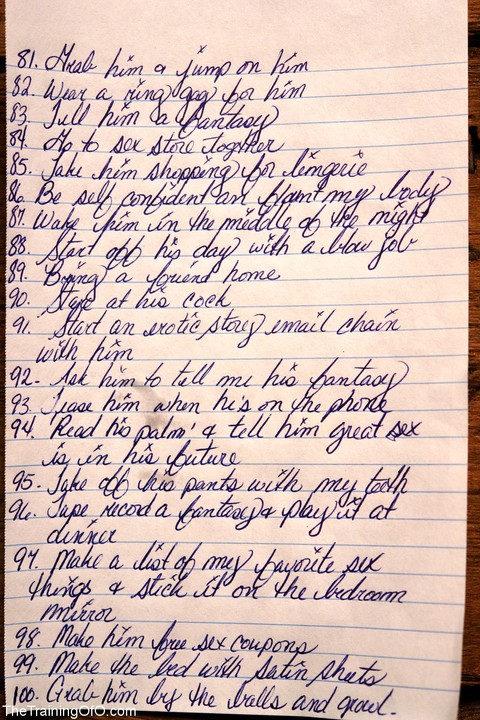 81. Grab him & jump on him
82. Wear a ring gag for him
83. Tell him a fantasy
84. Go to sex store together
85. Take him shopping for lingerie
86. Be self confident an flaunt my body
87. Wake him in the middle of the night
88. Start off his day with a blow job
89. Bring a friend home
90. Stare at his cock
91. Start an erotic story email chain
with him
92. Ask him to tell me his fantasy
93. Tease him when he's on the phone
94. Read his palm' & tell him great sex
is in his future
95. Take off his pants with my teeth
96. Tape record a fantasy & play it at
dinner
97. Make a list of my favorite sex
things & stick it on the bedroom
mirror
98. Make him free sex coupons
99. Make the bed with satin sheets
100. Grab him by the balls and growl.
TheTrainingOfO.com